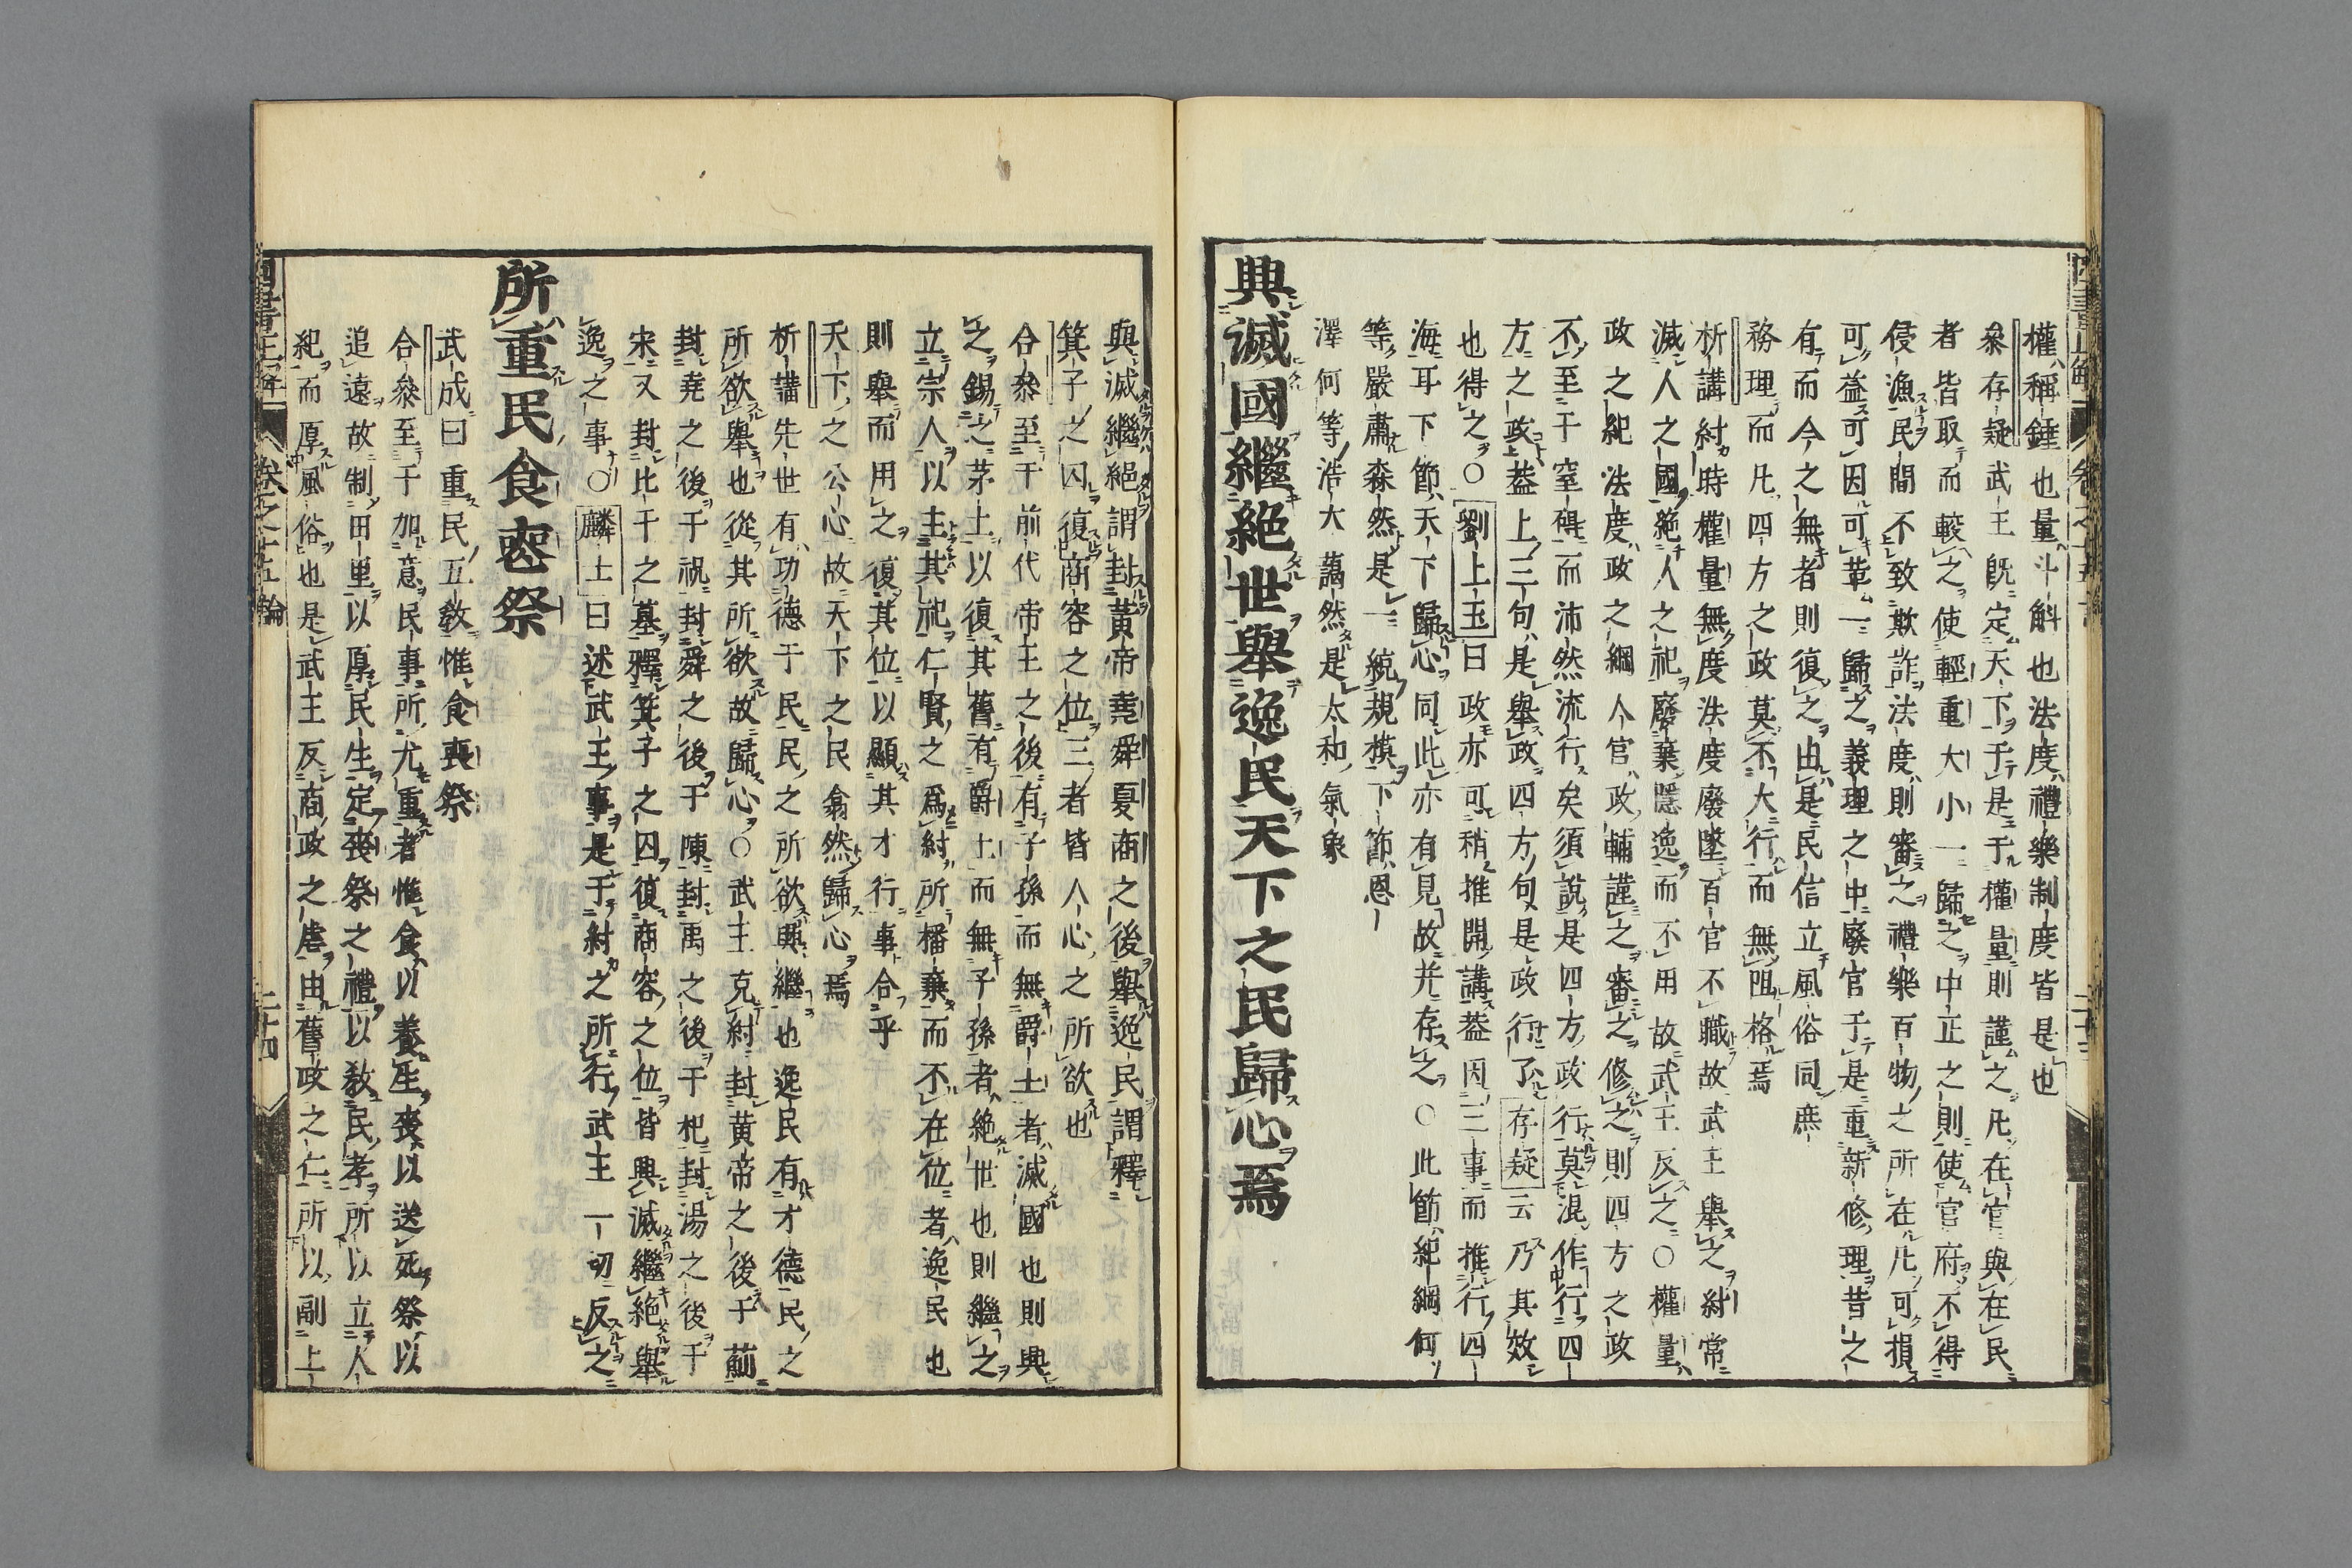 權稱錘也量斗斛也法度禮樂制度皆是也
叅存疑武王既定天下于是于權量則謹之凡在官與在民
者皆取而較之使輕重大小一歸之中正之則使官府不得
侵漁民間不致欺詐法度則審之禮樂百物之所在凡可損
可益可因可革一歸之義理之中廢官于是重新修理昔之
有而今之無者則復之由是民信立風俗同庶
務理而凡四方之政莫不大行而無阻格焉
析講紂時權量無度法度廢墜百官不職故武王舉之紂常
滅人之國絶人之祀廢棄隱逸而不用故武王反之〇權量
政之紀法度政之綱人官政輔謹之審之修之則四方之政
不至于窒碍而沛然流行矣須說是四方政行莫混作行四
方之政葢上三句是舉政四方句是政行了存疑云乃其效
也得之〇劉上玉曰政亦可稍推開講葢因三事而推行四
海耳下節天下歸心同此亦有見故并存之〇此節紀綱何
等嚴肅森然是一統規模下節恩
澤何等浩大藹然是太和氣象
興滅國繼絶世舉逸民天下之民歸心焉
興滅繼絕謂封黃帝堯舜夏商之後舉逸民謂釋
箕子之囚復商容之位三者皆人心之所欲也
合叅至于前代帝王之後有子孫而無爵土者滅國也則興
之錫之茅土以復其舊有爵土而無子孫者絶世也則繼之
立宗人以主其祀仁賢之爲紂所播棄而不在位者逸民也
則舉而用之復其位以顯其才行事合乎
天下之公心故天下之民翕然歸心焉
析講先世有功德于民民之所欲興繼也逸民有才德民之
所欲舉也從其所欲故歸心〇武王克紂封黃帝之後于薊
封堯之後于祝封舜之後于陳封禹之後于杞封湯之後于
宋又封比干之墓釋箕子之囚復商容之位皆興滅繼絕舉
逸之事〇麟士曰述武王事是于紂之所行武王一切反之
所重民食喪祭
武成曰重民五敎惟食喪祭
合叅至于加意民事所尤重者惟食以養生喪以送死祭以
追遠故制田里以厚民生定喪祭之禮以敎民孝所以立人
紀而厚風俗也是武王反商政之虐由舊政之仁所以副上
四書正解 卷之十五論 二十四